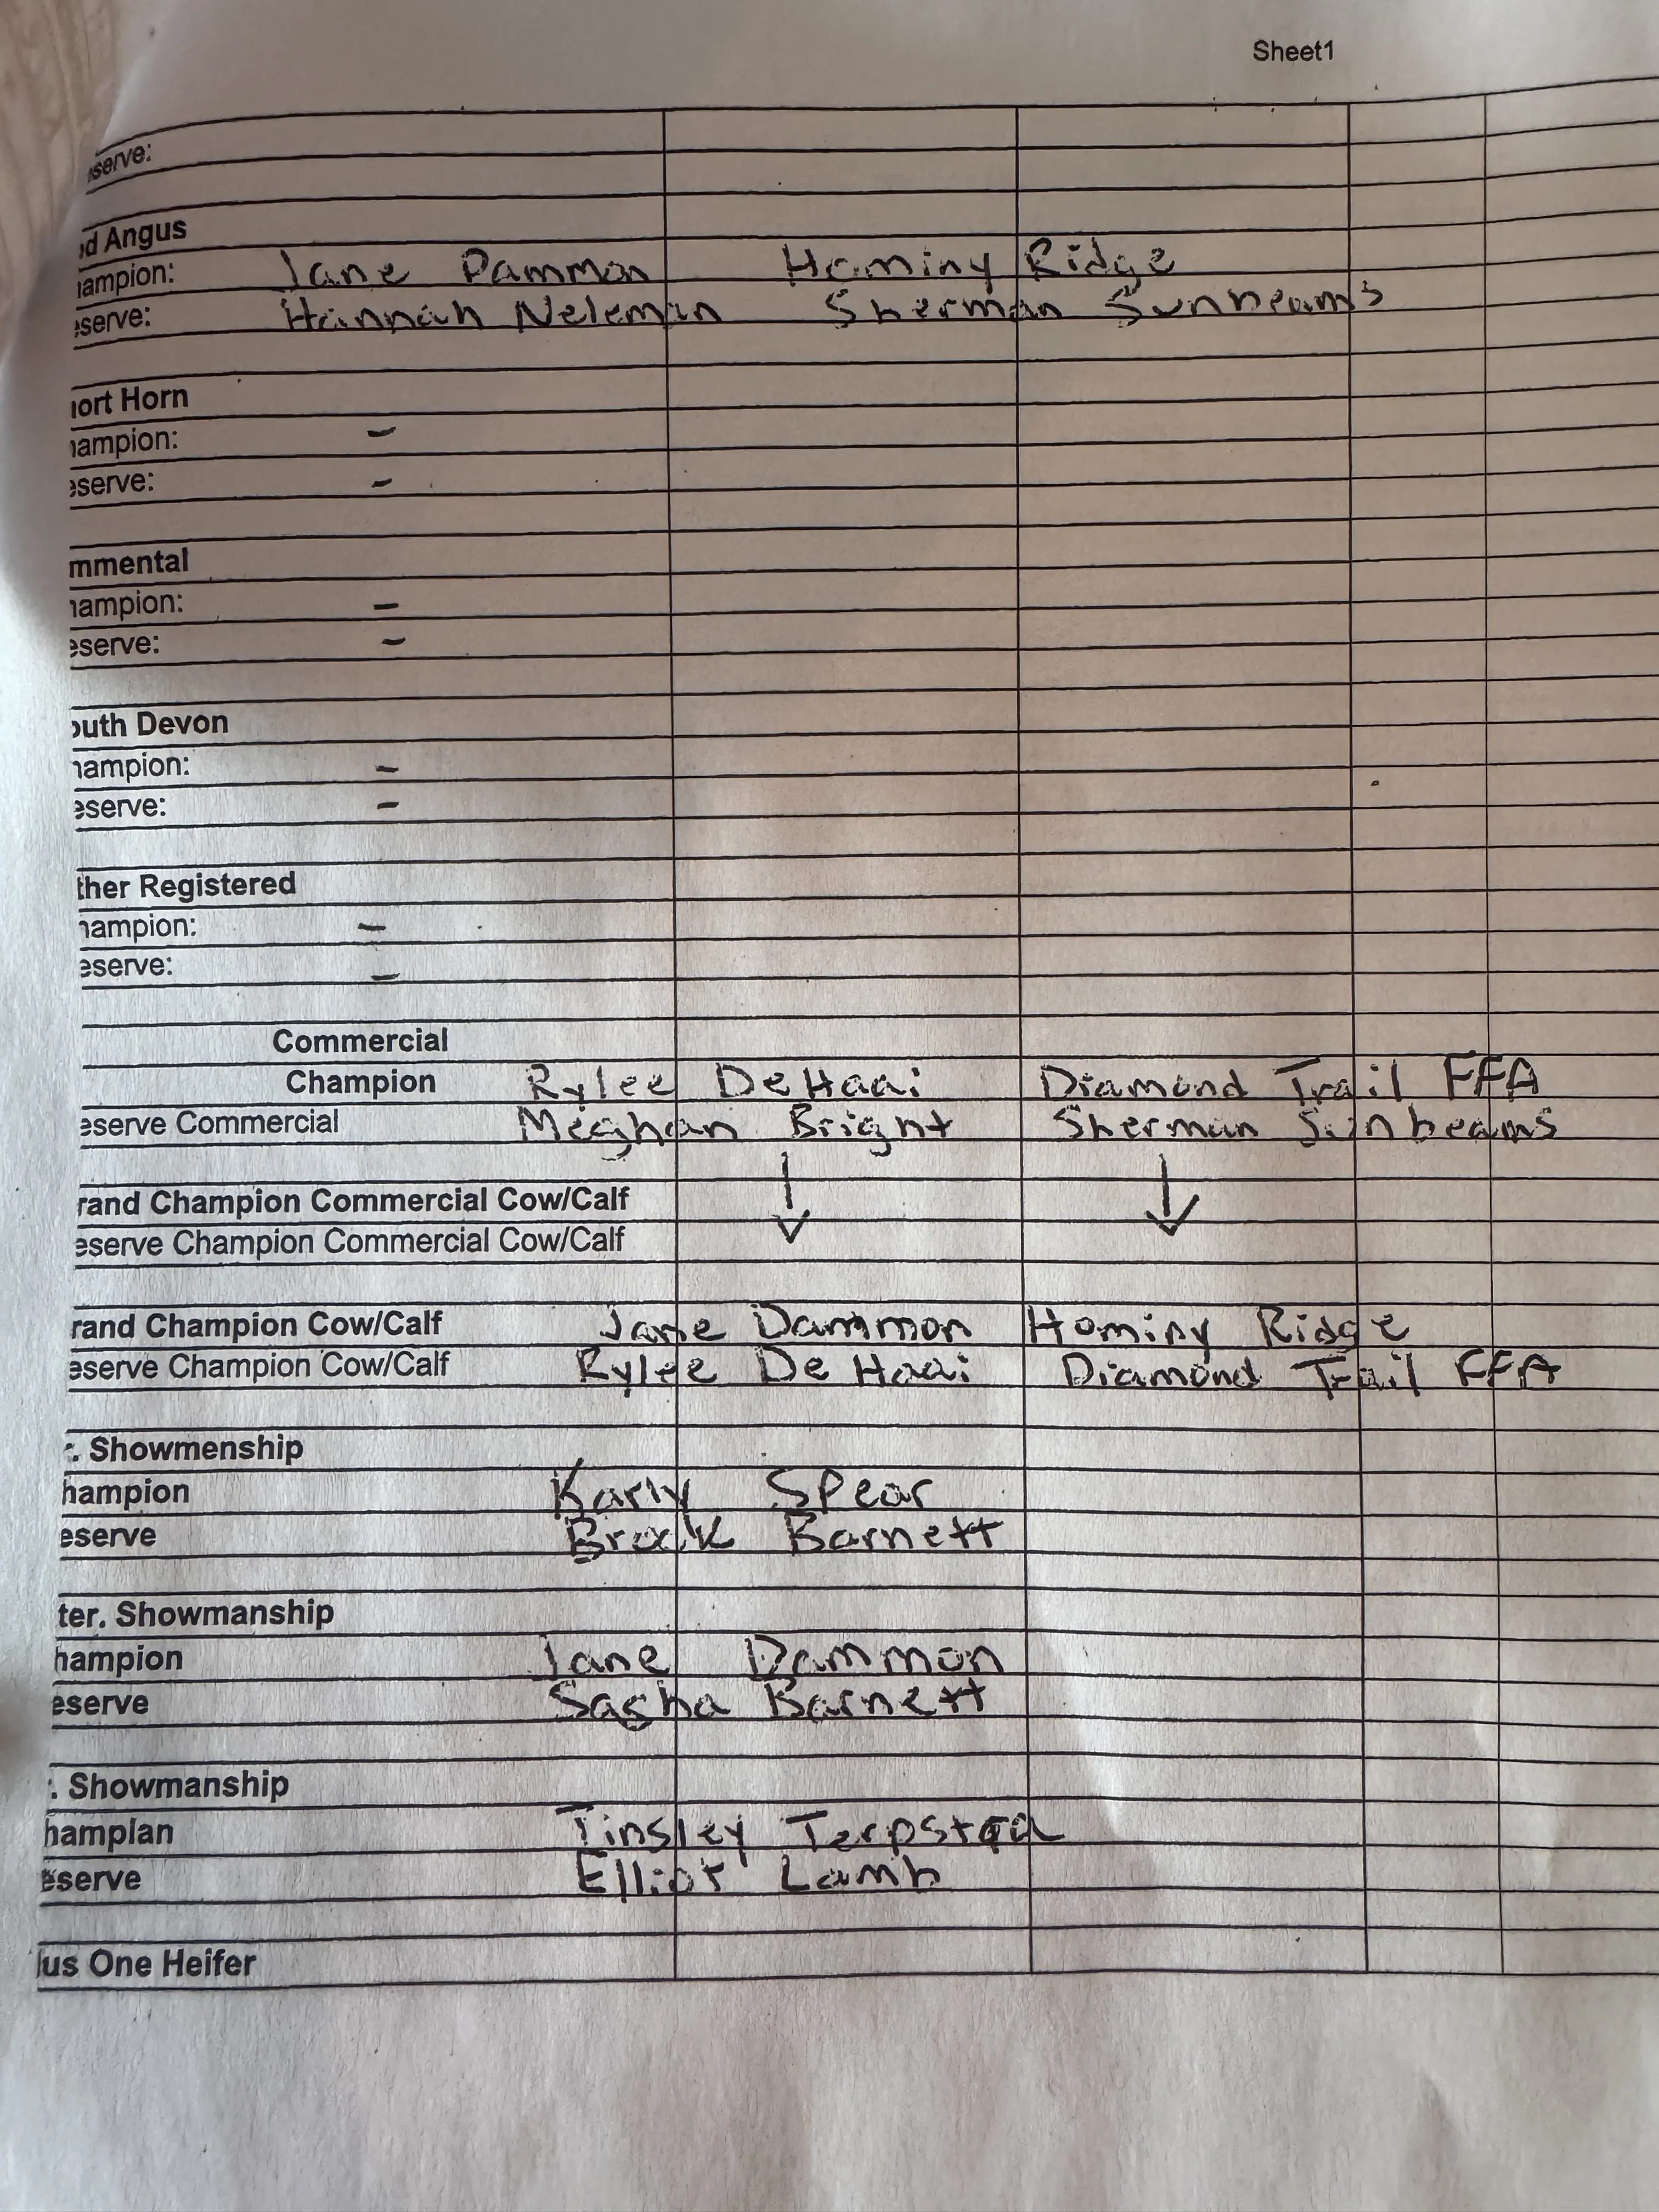 Sheet1
eserve:
d Angus
ampion: Jane Dammon Hominy Ridge
eserve: Hannah Neleman Sherman Sunbeams
ort Horn
hampion: –
eserve: –
mmental
hampion: –
eserve: –
outh Devon
hampion: –
eserve: –
ther Registered
hampion: –
eserve: –
Commercial
Champion Rylee DeHaai Diamond Trail FFA
eserve Commercial Meghan Bright Sherman Sunbeams
rand Champion Commercial Cow/Calf ↓ ↓
eserve Champion Commercial Cow/Calf
rand Champion Cow/Calf Jane Dammon Hominy Ridge
eserve Champion Cow/Calf Rylee De Haai Diamond Trail FFA
. Showmenship
hampion Karly Spear
eserve Brock Barnett
ter. Showmanship
hampion Jane Dammon
eserve Sasha Barnett
. Showmanship
hampian Tinsley Terpstra
eserve Elliot Lamb
us One Heifer